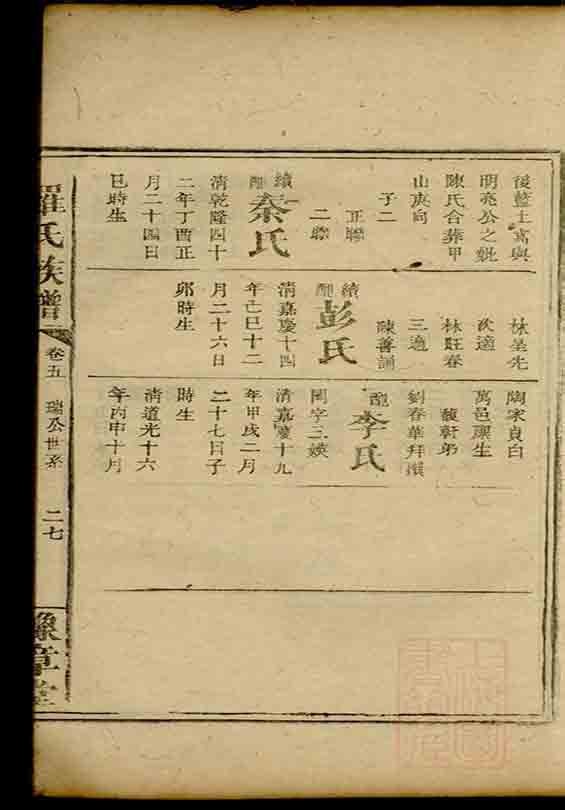 後藍土窩與
明亮公之妣
陳氏合葬甲
山庚向
子二
正聯
二聯
續配秦氏
清乾隆四十
二年丁酉正
月二十四日
巳時生
林呈先
次適
林旺春
三適
陳善誦
續配彭氏
清嘉慶十四
年己巳十二
月二十六日
卯時生
陶宋貞白
萬邑禀生
馥軒弟
劉春華拜撰
配李氏
閨字三媖
清嘉慶十九
年甲戌二月
二十七日子
時生
清道光十六
年丙申十月
羅氏族譜
卷五
瑞公世系
二七
豫章堂